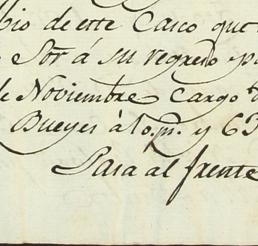 bio de este Casco que
Sor á su regreso p
de Noviembre Cargo d
Bueyes á 10 p.s y 63
Pasa al frente